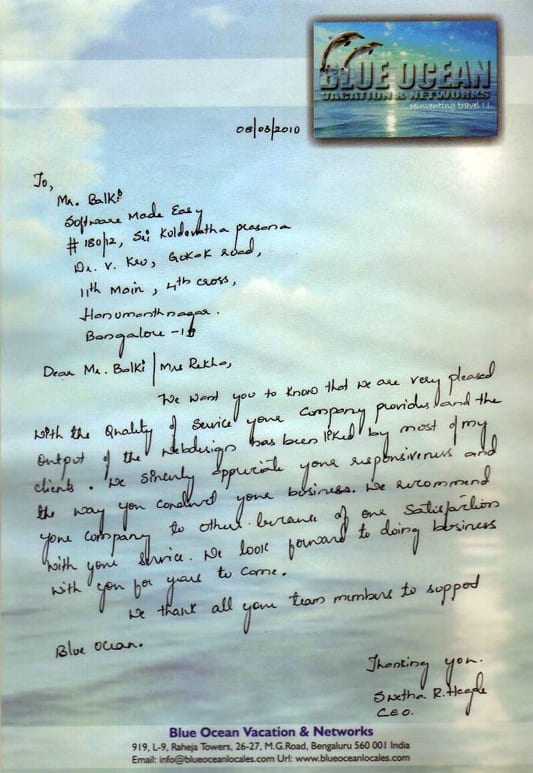 BLUE OCEAN
VACATION & NETWORKS
...reinventing travel ! !
08/03/2010
To,
Mr. Balki
Software Made Easy
# 180/12, Sri Kuldevatha prasana
Dr. V. Kev, Gokak road,
11th Main, 4th cross,
Hanumanthnagar.
Bangalore -
Dear Mr. Balki / Mrs Rekha,
We want you to know that we are very pleased
with the Quality of Service your Company provides and the
output of the webdesign has been liked by most of my
clients. We sincerly appriciate your responsiveness and
the way you conduct your business. We recommend
your Company to others because of our Satisfaction
with your service. We look forward to doing business
with you for years to come.
We thank all your team members to support
Blue Ocean.
Thanking you.
Swetha R. Hegde
CEO.
Blue Ocean Vacation & Networks
919, L-9, Raheja Towers, 26-27, M.G.Road, Bengaluru 560 001 India
Email: info@blueoceanlocales.com Url: www.blueoceanlocales.com